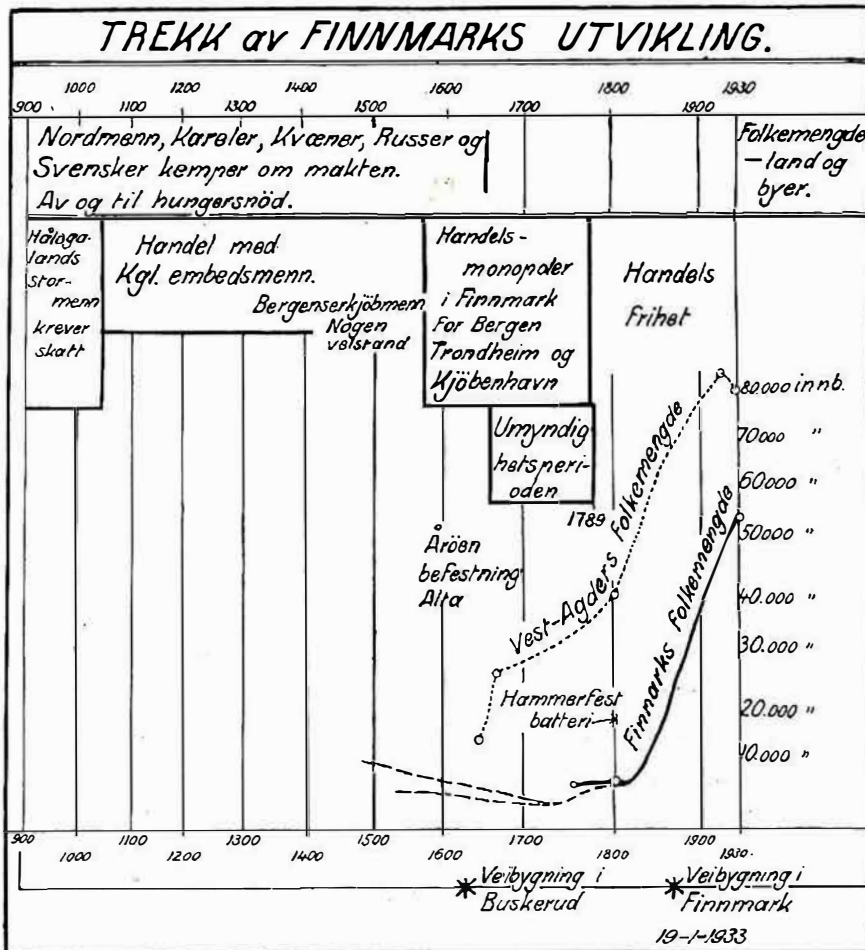 TREKK av FINNMARKS UTVIKLING.
900 1000 1100 1200 1300 1400 1500 1600 1700 1800 1900 1930
Nordmenn, Kareler, Kvæner, Russer og
Svensker kemper om makten.
Av og til hungersnöd.
Folkemengde
– land og
byer.
Håloga-
lands
stor-
menn
krever
skatt
Handel med
Kgl. embedsmenn.
Bergenserkjöbmenn
Nogen
velstand
Handels-
monopoler
i Finnmark
for Bergen
Trondheim og
Kjöbenhavn
Handels
frihet
Umyndig
hetsperi-
oden
1789
Åröen
befestning
Alta
Vest-Agders Folkemengde
Finnarks folkemengde
Hammerfest
batteri
80.000 innb.
70000 "
60.000 "
50.000 "
40.000 "
30.000 "
20.000 "
10.000 "
900 1000 1100 1200 1300 1400 1500 1600 1700 1800 1900 1930.
Veibygning i
Buskerud
Veibygning i
Finnmark
19-1-1933